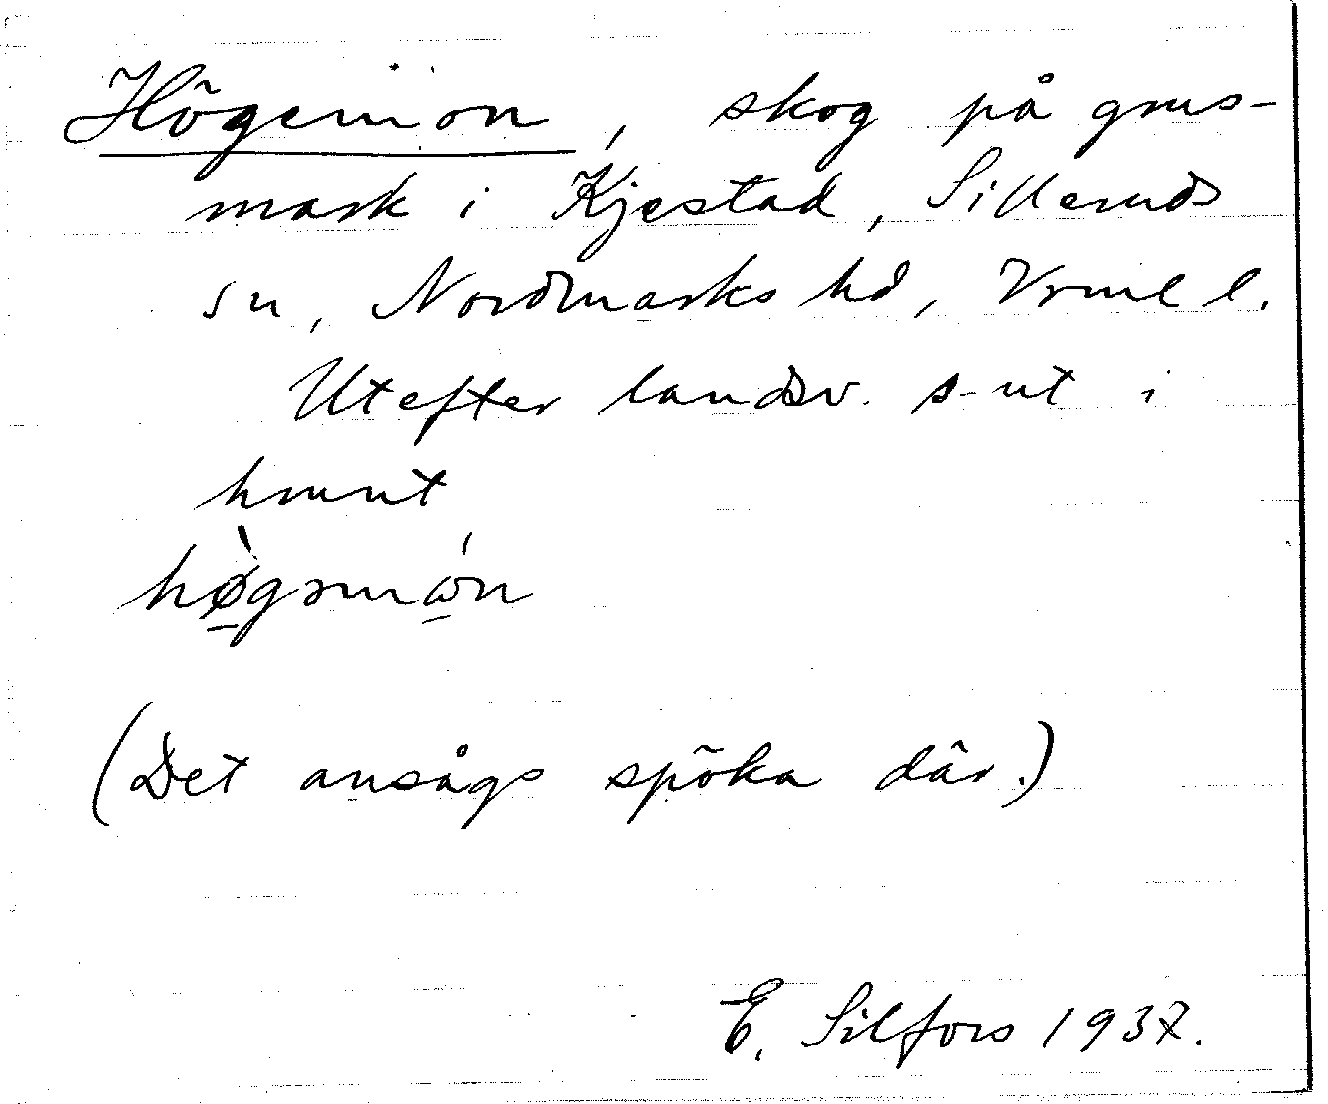 Högemon, skog på grus-
mark i Kjestad, Silleruds
sn, Nordmarks hd, Vrml l.
Utefter landsv. s-ut i
hmnt
(Det ansågs spöka där.)
E. Silfors 1937.